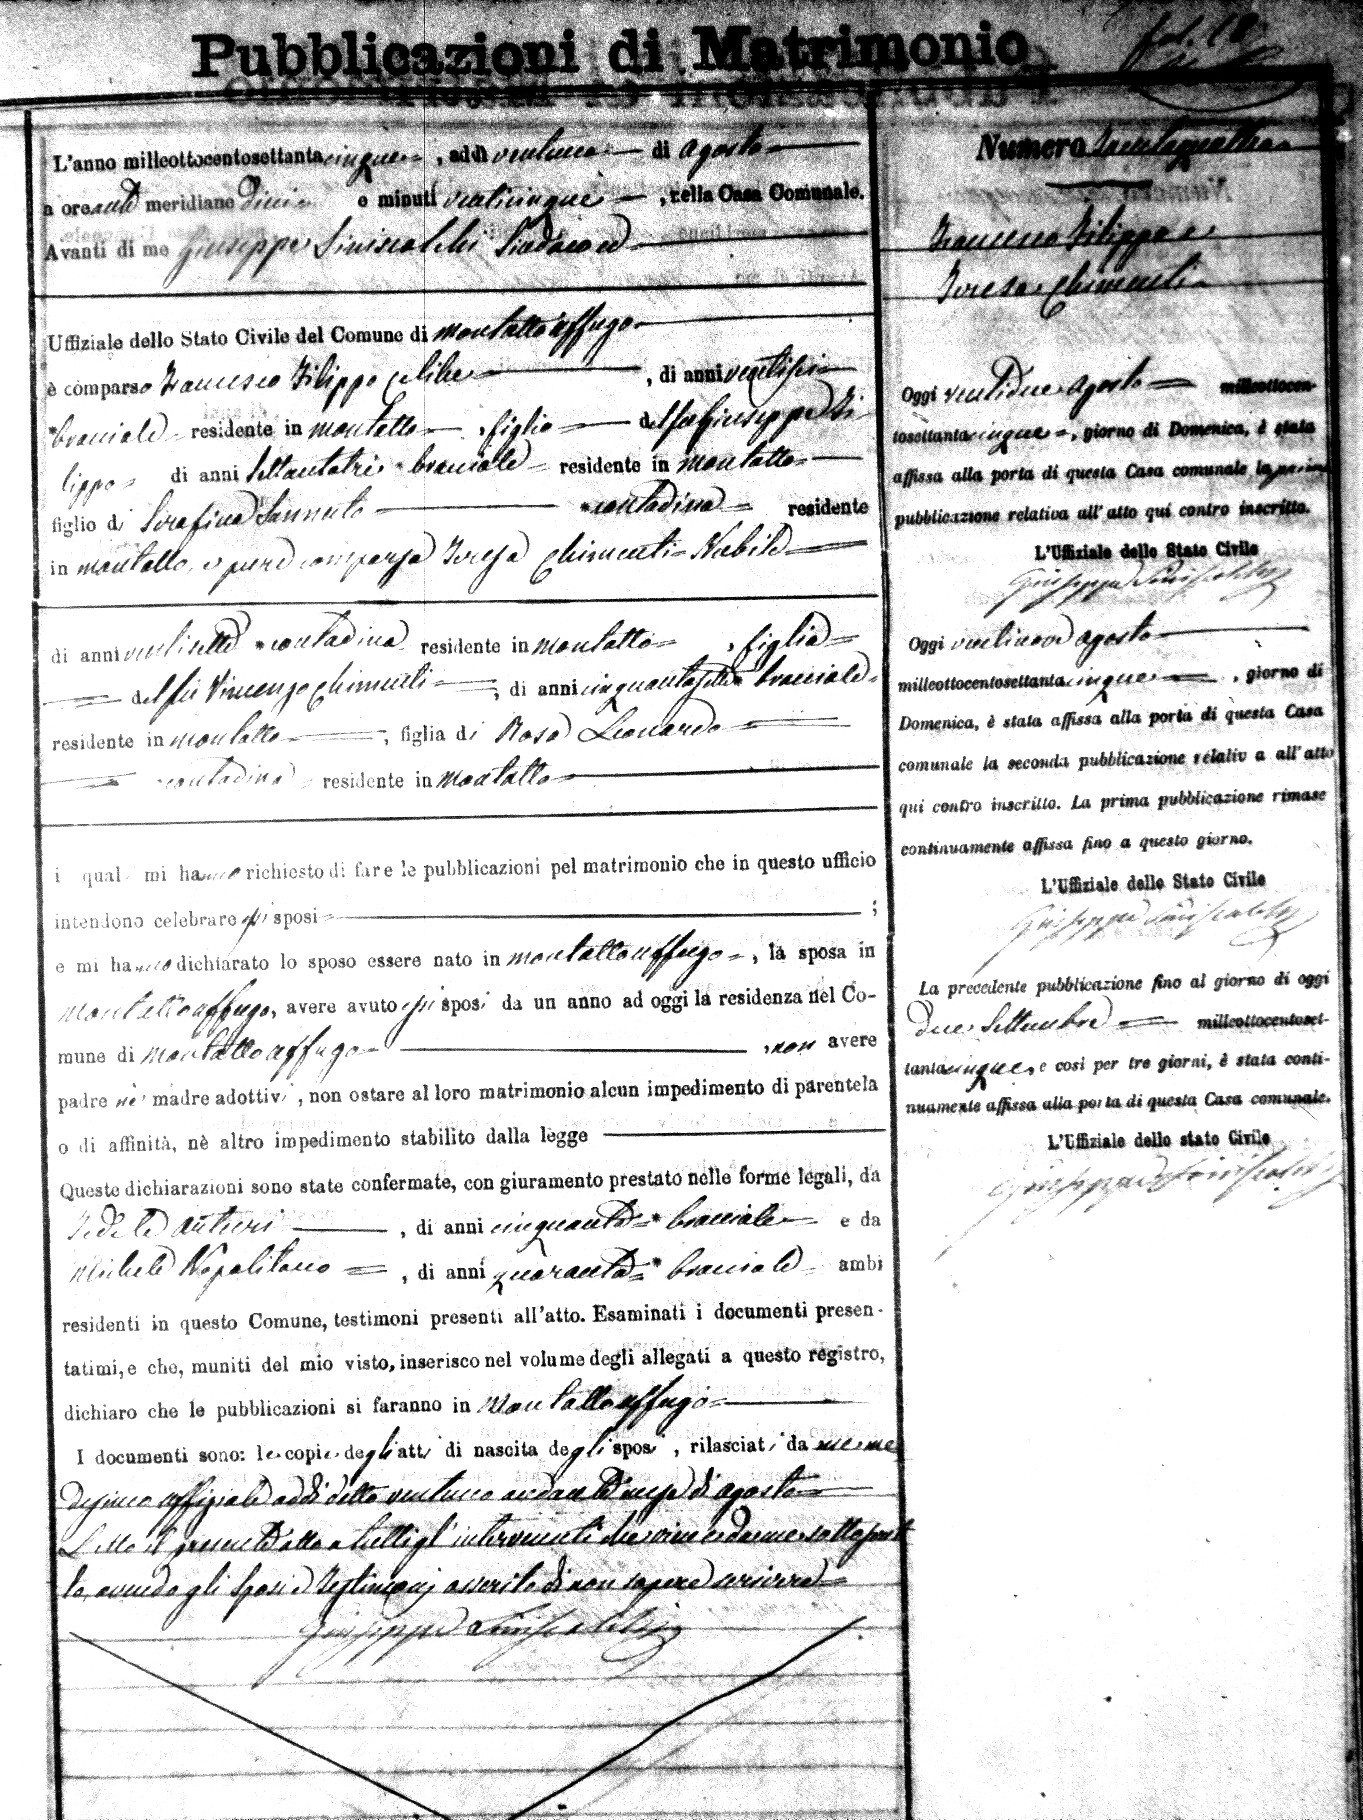 Pubblicazioni di Matrimonio
fol. 18
L'anno milleottocentosettantacinque, addì ventuno di agosto
a ore anti meridiane dieci e minuti venticinque, nella Casa Comunale.
Avanti di me Giuseppe Siniscalchi Sindaco ed
Uffiziale dello Stato Civile del Comune di Montalto Uffugo
è comparso Francesco Filippo celibe, di anni ventisei
bracciale residente in Montalto, figlio del fu Giuseppe Fi
lippo di anni settantatrè bracciale residente in Montalto
figlio di Serafina Sannuto contadina residente
in Montalto, e pure comparsa Teresa Chimenti Nubile
di anni ventisette contadina residente in Montalto, figlia
del fu Vincenzo Chimenti, di anni cinquantasette bracciale
residente in Montalto, figlia di Rosa Leonardo
contadina residente in Montalto
i quali mi hanno richiesto di fare le pubblicazioni pel matrimonio che in questo ufficio
intendono celebrare essi sposi;
e mi hanno dichiarato lo sposo essere nato in Montalto Uffugo, la sposa in
Montalto Uffugo, avere avuto essi sposi da un anno ad oggi la residenza nel Co-
mune di Montalto Uffugo, non avere
padre nè madre adottivi, non ostare al loro matrimonio alcun impedimento di parentela
o di affinità, nè altro impedimento stabilito dalla legge
Queste dichiarazioni sono state confermate, con giuramento prestato nelle forme legali, da
Fedele, di anni cinquanta bracciale e da
Michele Napolitano, di anni quaranta bracciale ambi
residenti in questo Comune, testimoni presenti all'atto. Esaminati i documenti presen-
tatimi, e che, muniti del mio visto, inserisco nel volume degli allegati a questo registro,
dichiaro che le pubblicazioni si faranno in Montalto Uffugo
I documenti sono: le copie degli atti di nascita degli sposi, rilasciati da me me
desimo uffiziale addì detto ventuno andante mese di agosto
Letto il presente atto a tutti gl'intervenuti che viene da me sottoscrit
to, avendo gli sposi e testimonj asserito di non sapere scrivere
Giuseppe Siniscalchi
Numero trentaquattro
Francesco Filippo e
Teresa Chimenti
Oggi ventidue agosto milleottocen-
tosettantacinque, giorno di Domenica, è stata
affissa alla porta di questa Casa comunale la prima
pubblicazione relativa all'atto qui contro inscritto.
L'Uffiziale dello Stato Civile
Giuseppe Siniscalchi
Oggi ventinove agosto
milleottocentosettantacinque, giorno di
Domenica, è stata affissa alla porta di questa Casa
comunale la seconda pubblicazione relativa all'atto
qui contro inscritto. La prima pubblicazione rimase
continuamente affissa fino a questo giorno.
L'Uffiziale dello Stato Civile
Giuseppe Siniscalchi
La precedente pubblicazione fino al giorno di oggi
due Settembre milleottocentoset-
tantacinque, e così per tre giorni, è stata conti-
nuamente affissa alla porta di questa Casa comunale.
L'Uffiziale dello stato Civile
Giuseppe Siniscalchi